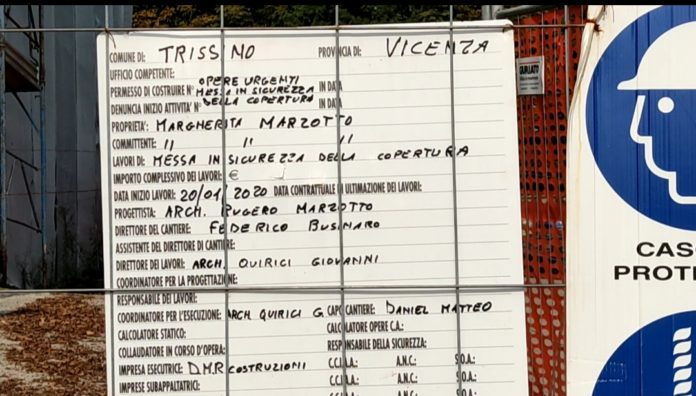 COMUNE DI: TRISSINO PROVINCIA DI: VICENZA
UFFICIO COMPETENTE: OPERE URGENTI
PERMESSO DI COSTRUIRE N° MESSA IN SICUREZZA IN DATA
DENUNCIA INIZIO ATTIVITA' N° DELLA COPERTURA IN DATA
PROPRIETA': MARGHERITA MARZOTTO
COMMITTENTE: " " "
LAVORI DI: MESSA IN SICUREZZA DELLA COPERTURA
IMPORTO COMPLESSIVO DEI LAVORI: €
DATA INIZIO LAVORI: 20/01/2020 DATA CONTRATTUALE DI ULTIMAZIONE DEI LAVORI:
PROGETTISTA: ARCH. RUGERO MARZOTTO
DIRETTORE DEL CANTIERE: FEDERICO BUSINARO
ASSISTENTE DEL DIRETTORE DI CANTIERE:
DIRETTORE DEI LAVORI: ARCH. QUIRICI GIOVANNI
COORDINATORE PER LA PROGETTAZIONE:
RESPONSABILE DEI LAVORI:
COORDINATORE PER L'ESECUZIONE: ARCH QUIRICI G. CAPO CANTIERE: DANIEL MATTEO
CALCOLATORE STATICO: CALCOLATORE OPERE C.A.:
COLLAUDATORE IN CORSO D'OPERA: RESPONSABILE DELLA SICUREZZA:
IMPRESA ESECUTRICE: D.M.R COSTRUZIONI C.C.I.A.A.: A.N.C.: S.O.A.:
IMPRESE SUBAPPALTATRICI: C.C.I.A.A.: A.N.C.: S.O.A.:
C.C.I.A.A.: A.N.C.: S.O.A.:
GUALLATO
CAS
PROTE